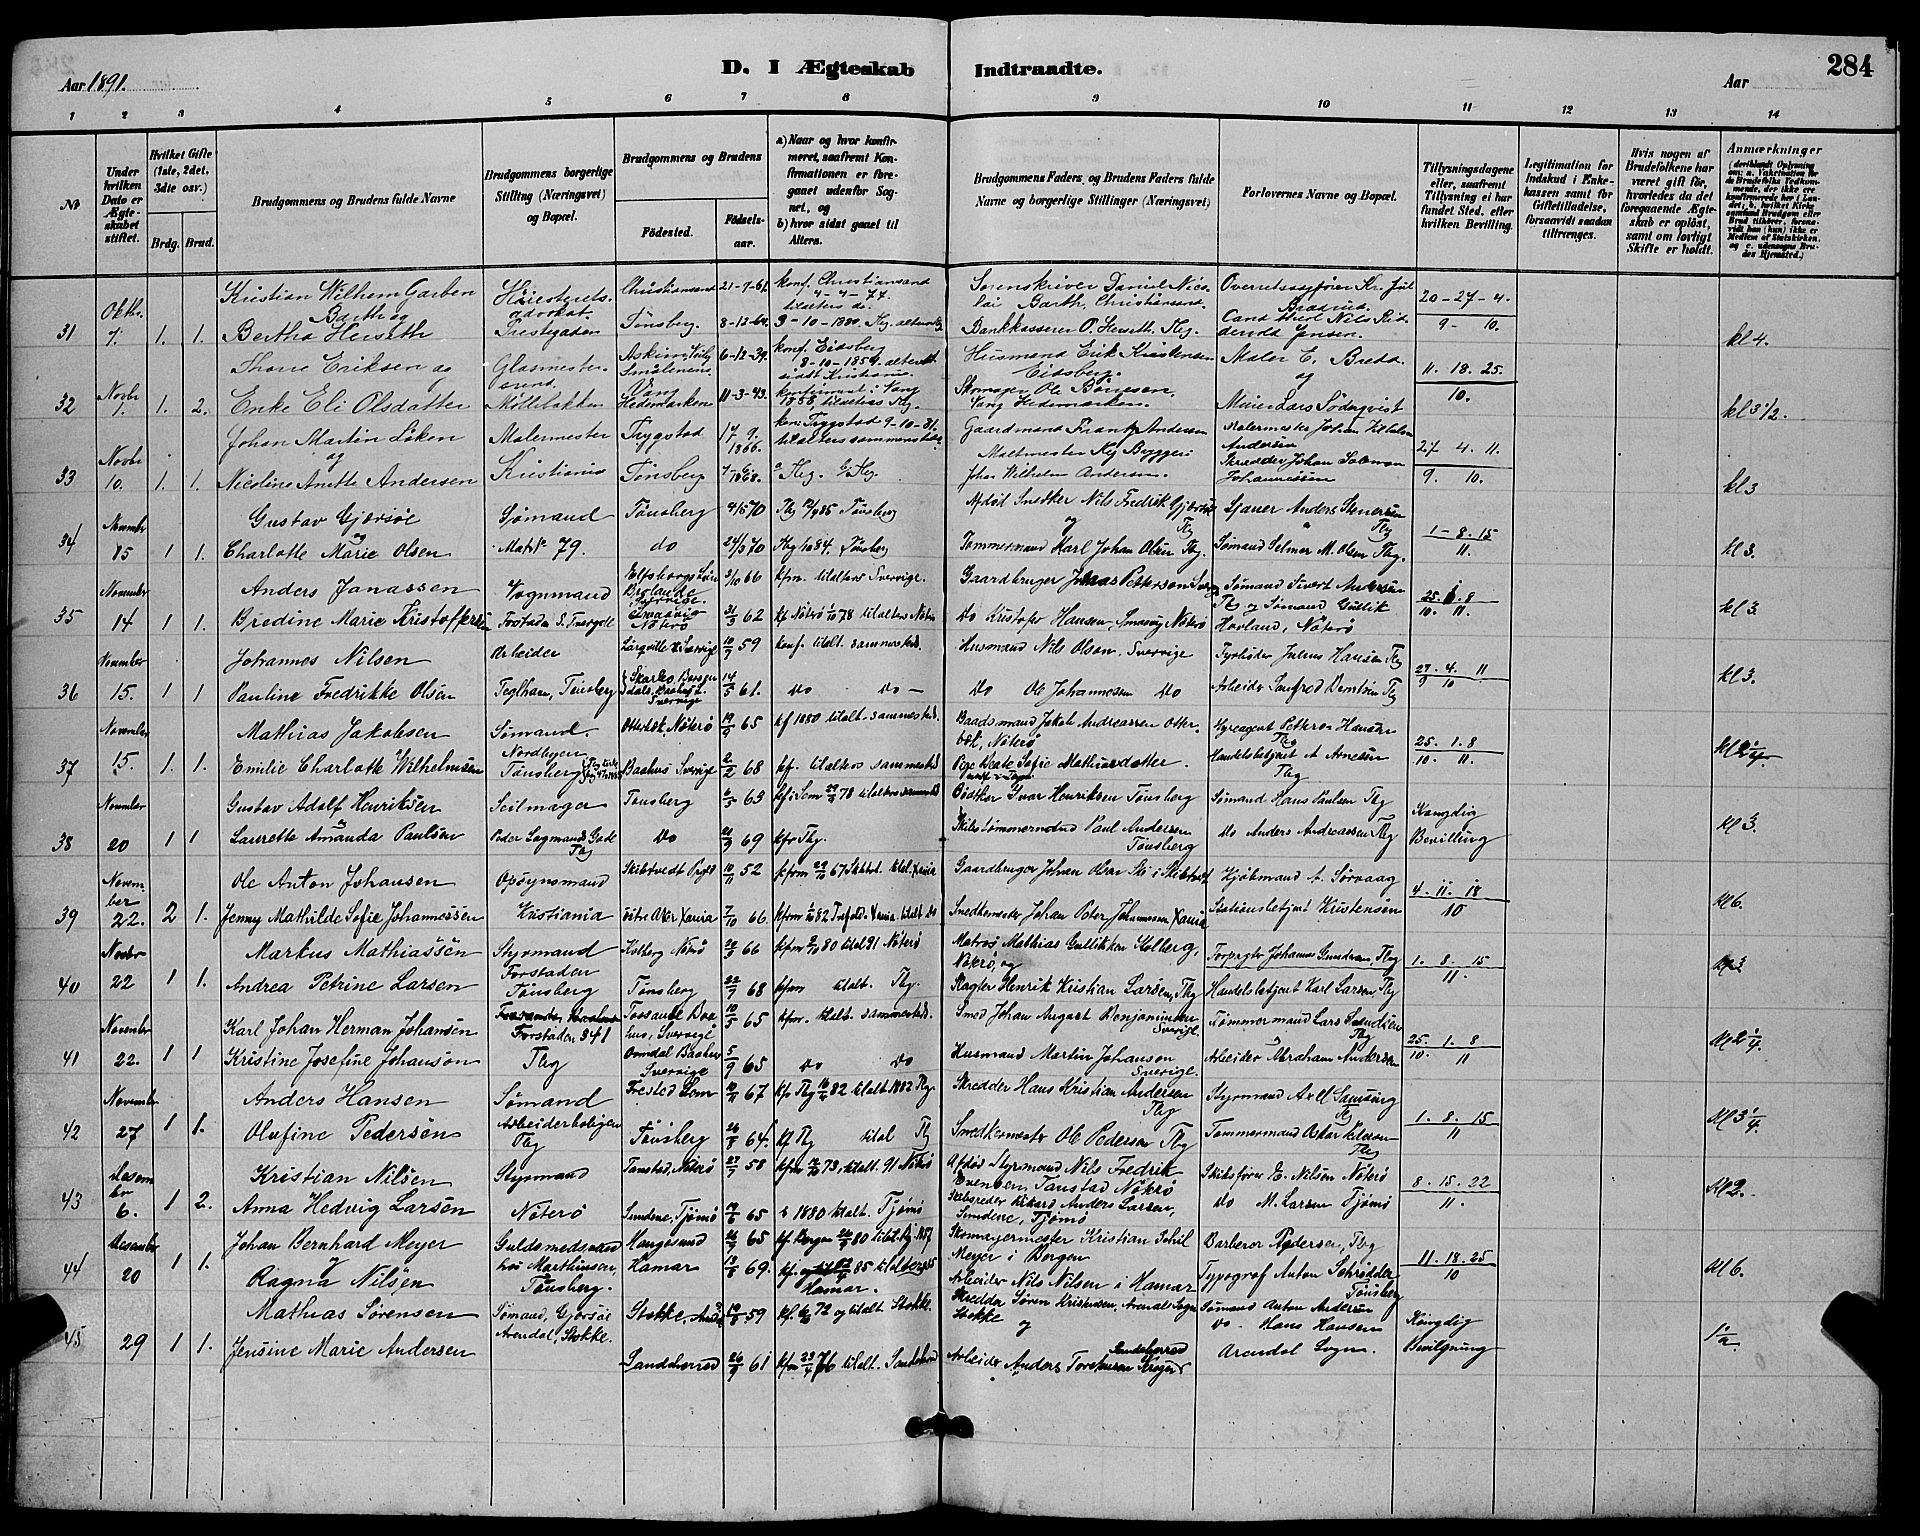 284
D. I Ægteskab Indtraadte.
Aar 1891.
Aar
1 2 3 4 5 6 7 8 9 10 11 12 13 14
No
Under hvilken Dato er Ægteskabet stiftet.
Hvilket Gifte (1ste, 2det, 3die osv.)
Brdg. Brud.
Brudgommens og Brudens fulde Navne
Brudgommens borgerlige Stilling (Næringsvei) og Bopæl.
Brudgommens og Brudens
Födested. Födselsaar.
a) Naar og hvor konfirmeret, saafremt Konfirmationen er foregaaet udenfor Sognet, og
b) hvor sidst gaaet til Alters.
Brudgommens Faders og Brudens Faders fulde Navne og borgerlige Stillinger (Næringsvei)
Forlovernes Navne og Bopæl.
Tillysningsdagene eller, saafremt Tillysning ei har fundet Sted, efter hvilken Bevilling.
Legitimation for Indskud i Enkekassen samt for Giftetilladelse, forsaavidt saadan tiltrænges.
Hvis nogen af Brudefolkene har været gift før, hvorledes da det foregaaende Ægteskab er opløst, samt om lovligt Skifte er holdt.
Anmærkninger
31 Oktbr. 7. 1. 1. Kristian Wilhelm Garben Barth og Høiesteretsadvokat Christiansand 21-9-61 konf. Christiansand 4-4-74 tilalters do Sorenskriver Daniel Nicolai Barth, Christiansand. Overretssagfører Kr. Juul Bradrud. 20-27-4. 9-10. kl 4.
Bertha Hesseth Prestegaden Tønsberg 8-12-64 3-10-1880 Tbg. Bankkasserer O. Heseth Tbg. Cand theol Nils Riddervold Jensen.
32 Novbr 1. 1. 2. Thore Eriksen og Glasmestersvend Askim Smaalenene 6-12-39 konf. Eidsberg 8-10-1854. sidst Kristiania Husmand Erik Kristensen Eidsberg. Maler E. Bredd og 11. 18. 25. 10. kl 3 1/2.
Enke Eli Olsdatter Møllebakken Vang Hedemarken 11-3-43. konfirmeret i Vang 1858, tilalters Tbg. Skomager Ole Børresen Vang Hedemarken. Murer Lars Söderqvist
33 Novbr 10. 1. 1. Johan Martin Löken og Malermester Trygstad 17 9. 1866. konf Trygstad 9-10-81. tilalters sammensteds Gaardmand Frantz Andersen Malermester Johan Vilhelm Andersen 27 4. 11. 9. 10. kl 3
Nicoline Anette Andersen Kristiania Tønsberg 1868. Tbg. Tbg. Maltmester Joh. Wilhelm Andersen. Skrædder Johan Salomon Johannessen
34 November 15 1 1. Gustav Gjersöe og Sømand Tønsberg 4/5 70 Tbg 85 Tønsberg Afdød Snedker Nils Fredrik Gjersöe og Tbg Ljaaer Anders Stenersen Tbg 1-8.15 11. kl 3.
Charlotte Marie Olsen Matr. 79. do 24/3 70 Tbg 84. Tønsberg Tømmermand Karl Johan Olsen Tbg. Sømand Selmer M. Olsen Tbg.
35 November 14 1 1. Anders Janassen Vognmand Elfsborgs Län Sverrige 3/10 66 kfm. tilalters Sverrige. Gaardbruger Jonas Petterson Sverige Sømand Sivert Andersen Tbg og Sømand Gullik Hovland, Nöterö 25. 1. 8 10. 11. kl 3.
Bredine Marie Kristoffersen Forstaden S. Tvergt. Smaavig Nöterö 31/3 62 kf Nöterö 1/10 78 tilalters Nöterö Do Kristofer Hansen, Smavig Nöterö
36 November 15. 1 1. Johannes Nilsen Arbeider Sverrige 10/7 59 konf. tilalt. sammesteds. Husmand Nils Olson, Sverrige Fyrböder Julius Hansen Tbg 27. 4. 11 9 10 kl 3.
Pauline Fredrikke Olsen Teglhan, Tønsberg Sverrige 14/5 61. do do — Do Ole Johannesen Do Arbeider Sanfred Berntsen Tbg
37 November 15. 1. 1. Mathias Jakobsen Sømand Otterbek, Nöterö 19/9 65 kf 1880 tilalt. sammesteds. Baadsmand Jakob Andreassen Otterbek, Nöterö Hyreagent Petterson Hansen Tbg 25. 1. 8 10. 11. kl
Emilie Charlotte Wilhelmsen Nordbyen Tønsberg Baahus Sverige 2/2 68 kf. tilalters sammesteds Pige Beate Sofie Mathiasdatter. Handelsbetjent A. Arnesen Tbg
38 November 20 1 1 Gustav Adolf Henriksen Seilmager Tønsberg 6/5 63 kf i Sem 29/9 78 tilalters sammesteds Bødtker Ivar Henriksen Tønsberg Sømand Hans Paulsen Tbg Kongelig Bevilling kl 3.
Laurette Amanda Paulsen Peder Lagmands Gade Tbg Do 21/9 69 kfr Tbg. Skibstømmermand Paul Andersen Tønsberg Do Anders Andreassen Tbg
39 November 22. 2 1. Ole Anton Johansen Opsynsmand Skibtvedt Prgd 10/11 52 kfrm 29/10 67 Skibtvt. tilal. Xania Gaardbruger Johan Olsen Ski i Skibtvet Kjøbmand A. Sørvaag 4. 11. 18 10 kl 6.
Jenny Mathilde Sofie Johannessen Kristiania Østre Aker Xania 7/10 66. kfrm 1/10 82 Trefold. Xania tilalt do Snedkermester Johan Peter Johannessen Xania Stationsbetjent Kristensen
40 Novbr 22 1 1. Markus Mathiassen Styrmand Kolberg Nöterö 20/3 66 kfm 80 tilal 91 Nöterö Matros Mathias Gulliksen Kolberg, Nöterö, og Forpagter Johannes Gundersen, Tbg 1. 8. 15 11. kl 3
Andrea Petrine Larsen Forstaden Tønsberg Tønsberg 22/7 68 kfrm tilalt. Tbg. Slagter Henrik Kristian Larsen, Tbg Handelsbetjent Karl Larsen Tbg
41 November 22. 1 1 Karl Johan Herman Johansen Forstaden 341 Tossande Baahus, Sverrige 10/5 65 kfrm. tilalt. sammesteds. Smed Johan August Benjaminsen Sverige Tømmermand Lars Svendsen Tbg 25. 1. 8 10. 11 kl 2 1/4.
Kristine Josefine Johanson Tbg Ormdal Baahus Sverrige 5/9 65 do do Husmand Martin Johanson Sverige. Arbeider Abraham Andersen
42 November 27 1 1. Anders Hansen Sømand Frested Sem 10/11 67 kf Tbg 16/4 82 tilalt 1882 Tbg. Skredder Hans Kristian Andersen Tbg Styrmand Axel Samsung Tbg 1. 8. 15 11 kl 3 1/4.
Olufine Pedersen Arbeiderboligen Tbg Tønsberg 26/8 64. kf Tbg tilal Tbg Snedkermester Ole Pedersen Tbg Tømmermand Oskar Pedersen Tbg
43 Desembr 6. 1 2. Kristian Nilsen Styrmand Tanstad, Nöterö 27/7 58 kfm 73, tilalt. 91 Nöterö Afdød Styrmand Nils Fredrik Evensen Tanstad Nöterö Skibsfører E. Nilsen Nöterö 8. 15. 22 11. kl 2.
Anna Hedvig Larsen Nöterö Sundene, Tjømø 19/6 65 1880 tilalt. Tjømø Skibsreder Rikard Anders Larsen, Sundene, Tjømø Do M. Larsen Tjømø
44 Desember 20 1 1. Johan Bernhard Meyer Guldsmedsvend Haugesund 26/9 65 kf. Bergen 80 tilalt. Skomagermester Kristian Schil Meyer i Bergen Barberer Pedersen, Tbg 11. 18. 25 10 kl 6.
Ragna Nilsen hos Marthinsen, Tønsberg. Hamar 13/8 69. kf. 85 Hamar. Arbeider Nils Nilsen i Hamar Typograf Anton Schrødder Tønsberg
45 29 1 1. Mathias Sörensen Sømand, Gjersöe Arendal, Stokke. Stokke, 19/8 59 kf. 72 og tilalt Stokke. Skredder Sören Kristiansen, Arendal Sogn Stokke og Sømand Anton Andersen Kongelig Bevilgning
Jensine Marie Andersen Sandeherred 26/9 61 kfm 23/4 76 tilalt. Sandeherred Arbeider Anders Sandeherred do. Hans Hansen Arendal Sogn.